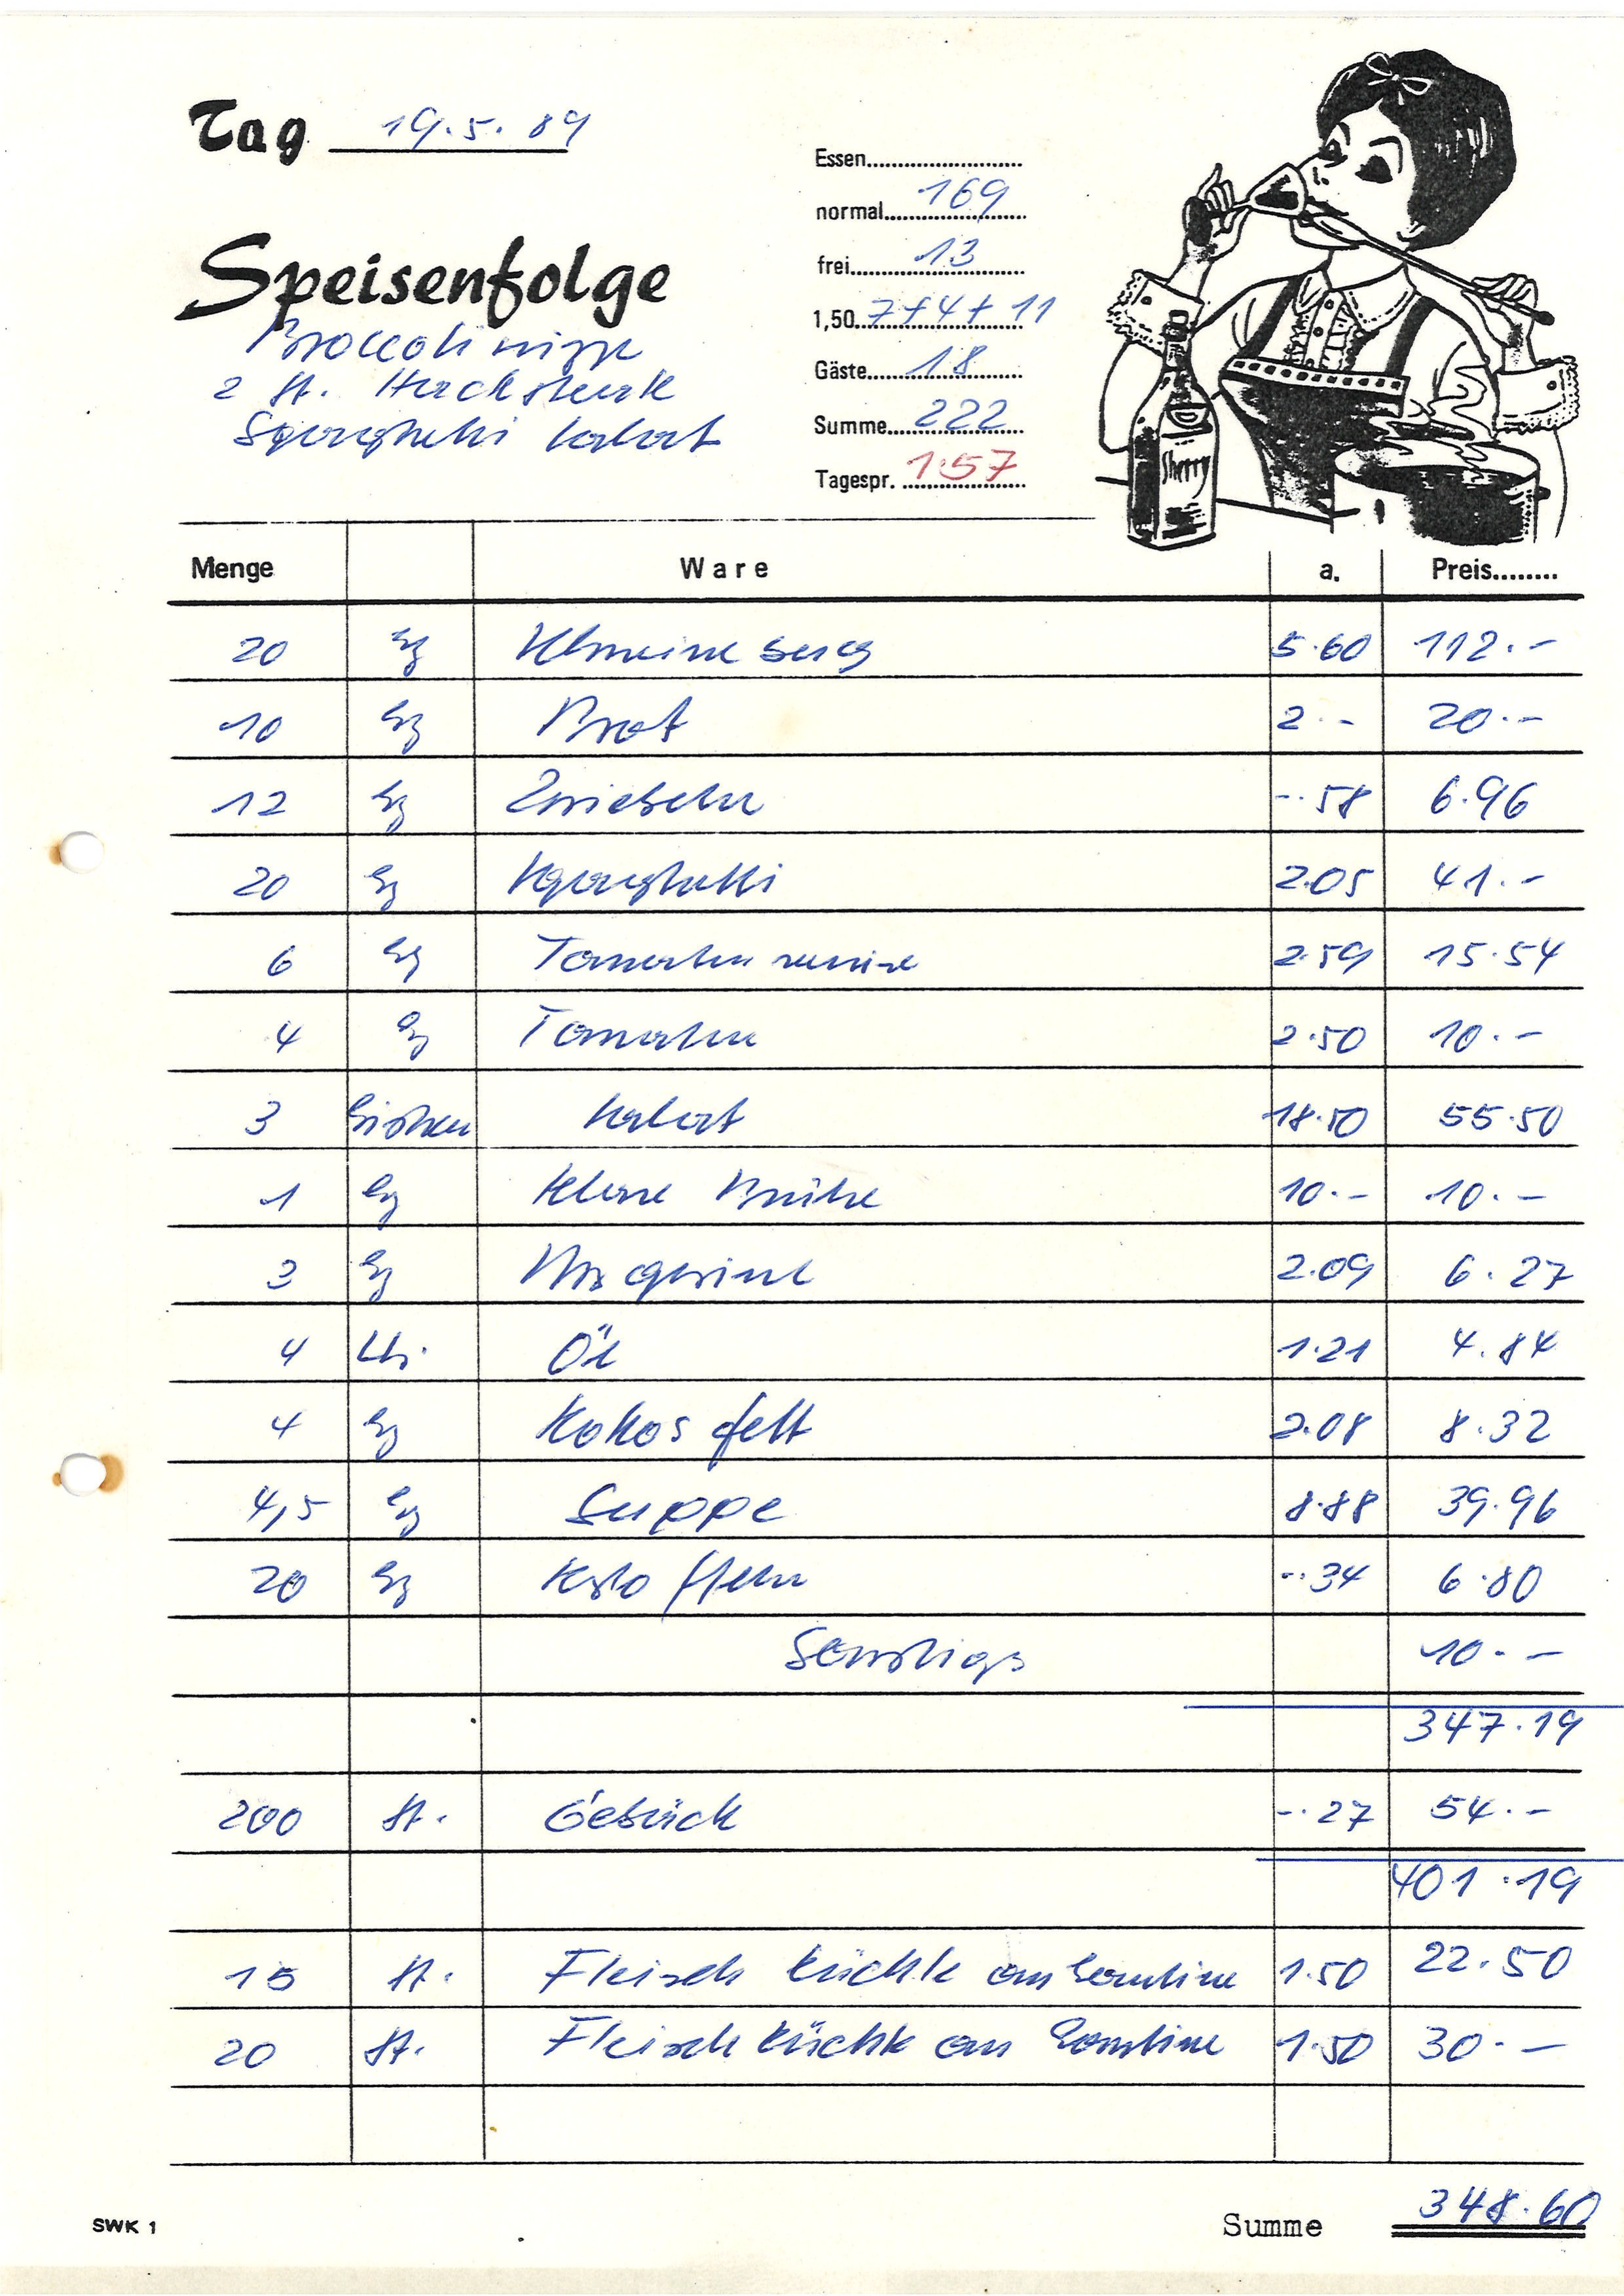 Tag 19.5.89
Speisenfolge
Broccolisuppe
2 St. Hacksteak
Spaghetti Salat
Essen
normal 169
frei 13
1,50 7+4+11
Gäste 18
Summe 222
Tagespr. 1.57
Sherry
Menge Ware a. Preis
20 kg 5.60 112.-
10 kg Brot 2.- 20.-
12 kg Zwiebeln -.58 6.96
20 kg Spaghetti 2.05 41.-
6 kg Tomaten 2.59 15.54
4 kg Tomaten 2.50 10.-
3 Kisten Salat 18.50 55.50
1 kg Klare Brühe 10.- 10.-
3 kg Margarine 2.09 6.27
4 Ltr. Öl 1.21 4.84
4 kg Kokosfett 2.08 8.32
4,5 kg Suppe 8.88 39.96
20 kg Kartoffeln -.34 6.80
Sonstiges 10.-
347.19
200 St. Gebäck -.27 54.-
401.19
15 St. Fleischküchle an Kantine 1.50 22.50
20 St. Fleischküchle an Kantine 1.50 30.-
SWK 1
Summe 348.60